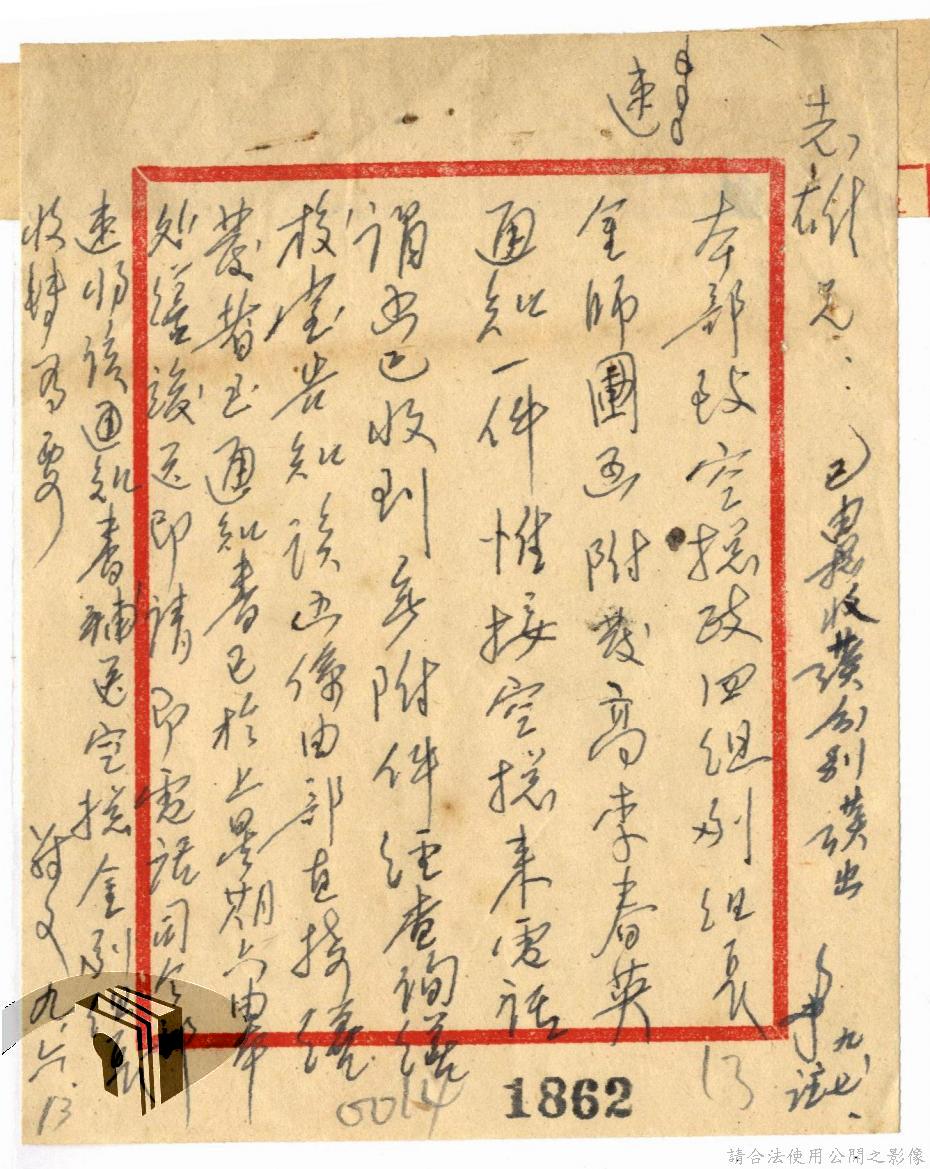 速
志雄兄:
本部致空總政四組劉組長
金師團函附發高李春英
通知一件惟接空總來電話
謂函已收到無附件經查詢繕
校室告知該函係由部直接繕
發者至通知書已於上星期六由本
繕竣送即請即電話司令部
速將該通知書補送空總金劉組長
收轉為要
九.六.
已電總收
分別
出
九.七.
13
0014
1862
請合法使用公開之影像